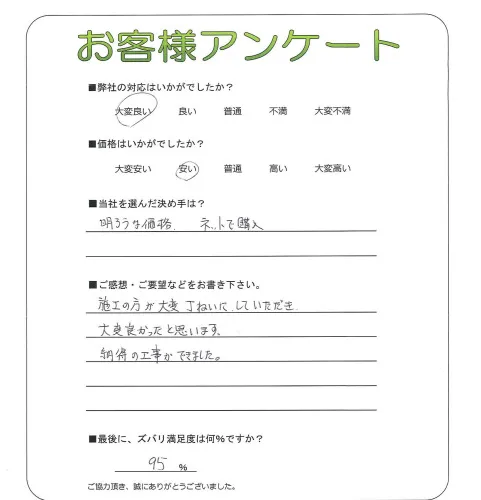 お客様アンケート
■弊社の対応はいかがでしたか？
大変良い 良い 普通 不満 大変不満
■価格はいかがでしたか？
大変安い 安い 普通 高い 大変高い
■当社を選んだ決め手は？
明ろうな価格. ネットで購入
■ご感想・ご要望などをお書き下さい。
施工の方が大変丁ねいに していただき.
大変良かったと思います.
納得の工事ができました。
■最後に、ズバリ満足度は何％ですか？
95 %
ご協力頂き、誠にありがとうございました。